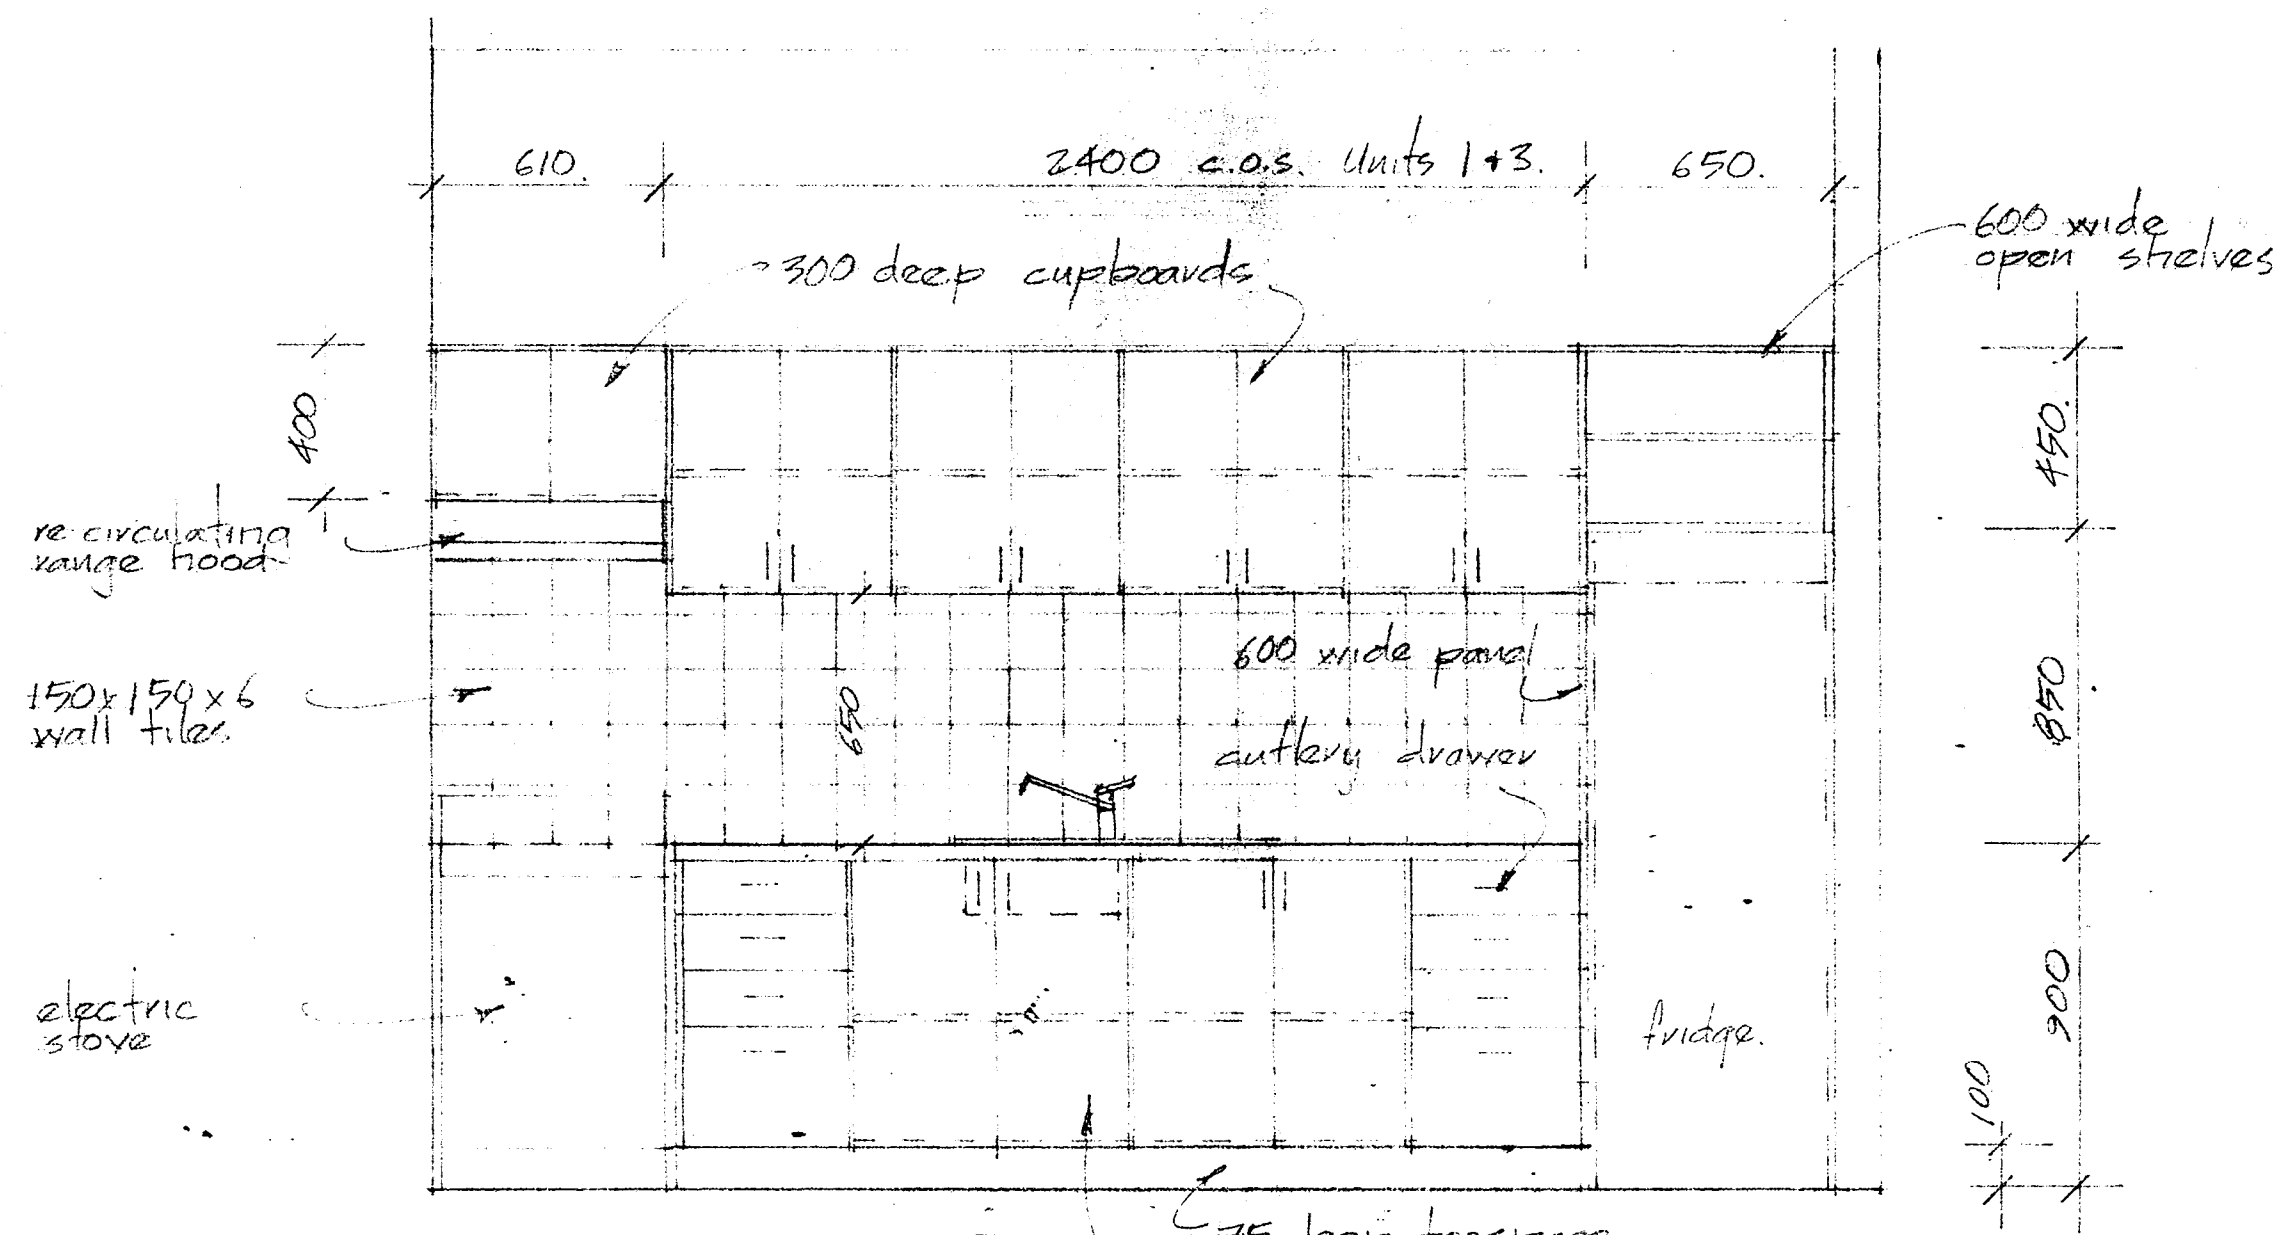 610.
2400 c.o.s. Units 1+3.
650.
600 wide
open shelves
300 deep cupboards
400
450.
re-circulating
range hood
600 wide panel
150x150x6
wall tiles
650
850
cutlery drawer
electric
stove
fridge.
900
100
75